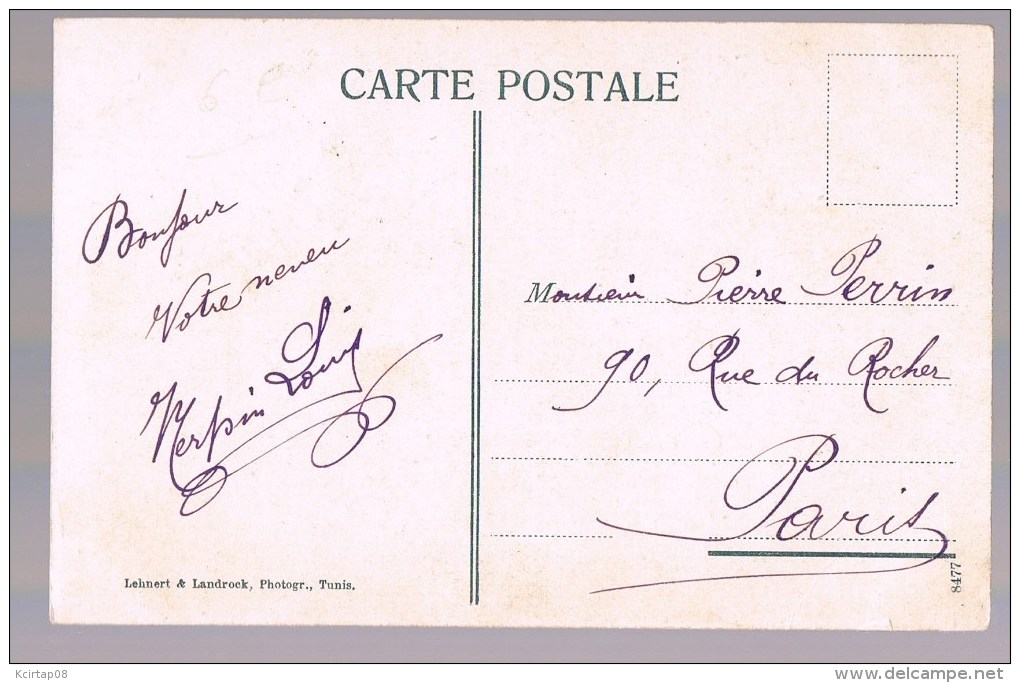 CARTE POSTALE
Bonjour
Votre neveu
Louis
Monsieur Pierre Perrin
90, Rue du Rocher
Paris
Lehnert & Landrock, Photogr., Tunis.
8477
Kcirtap08
www.delcampe.net